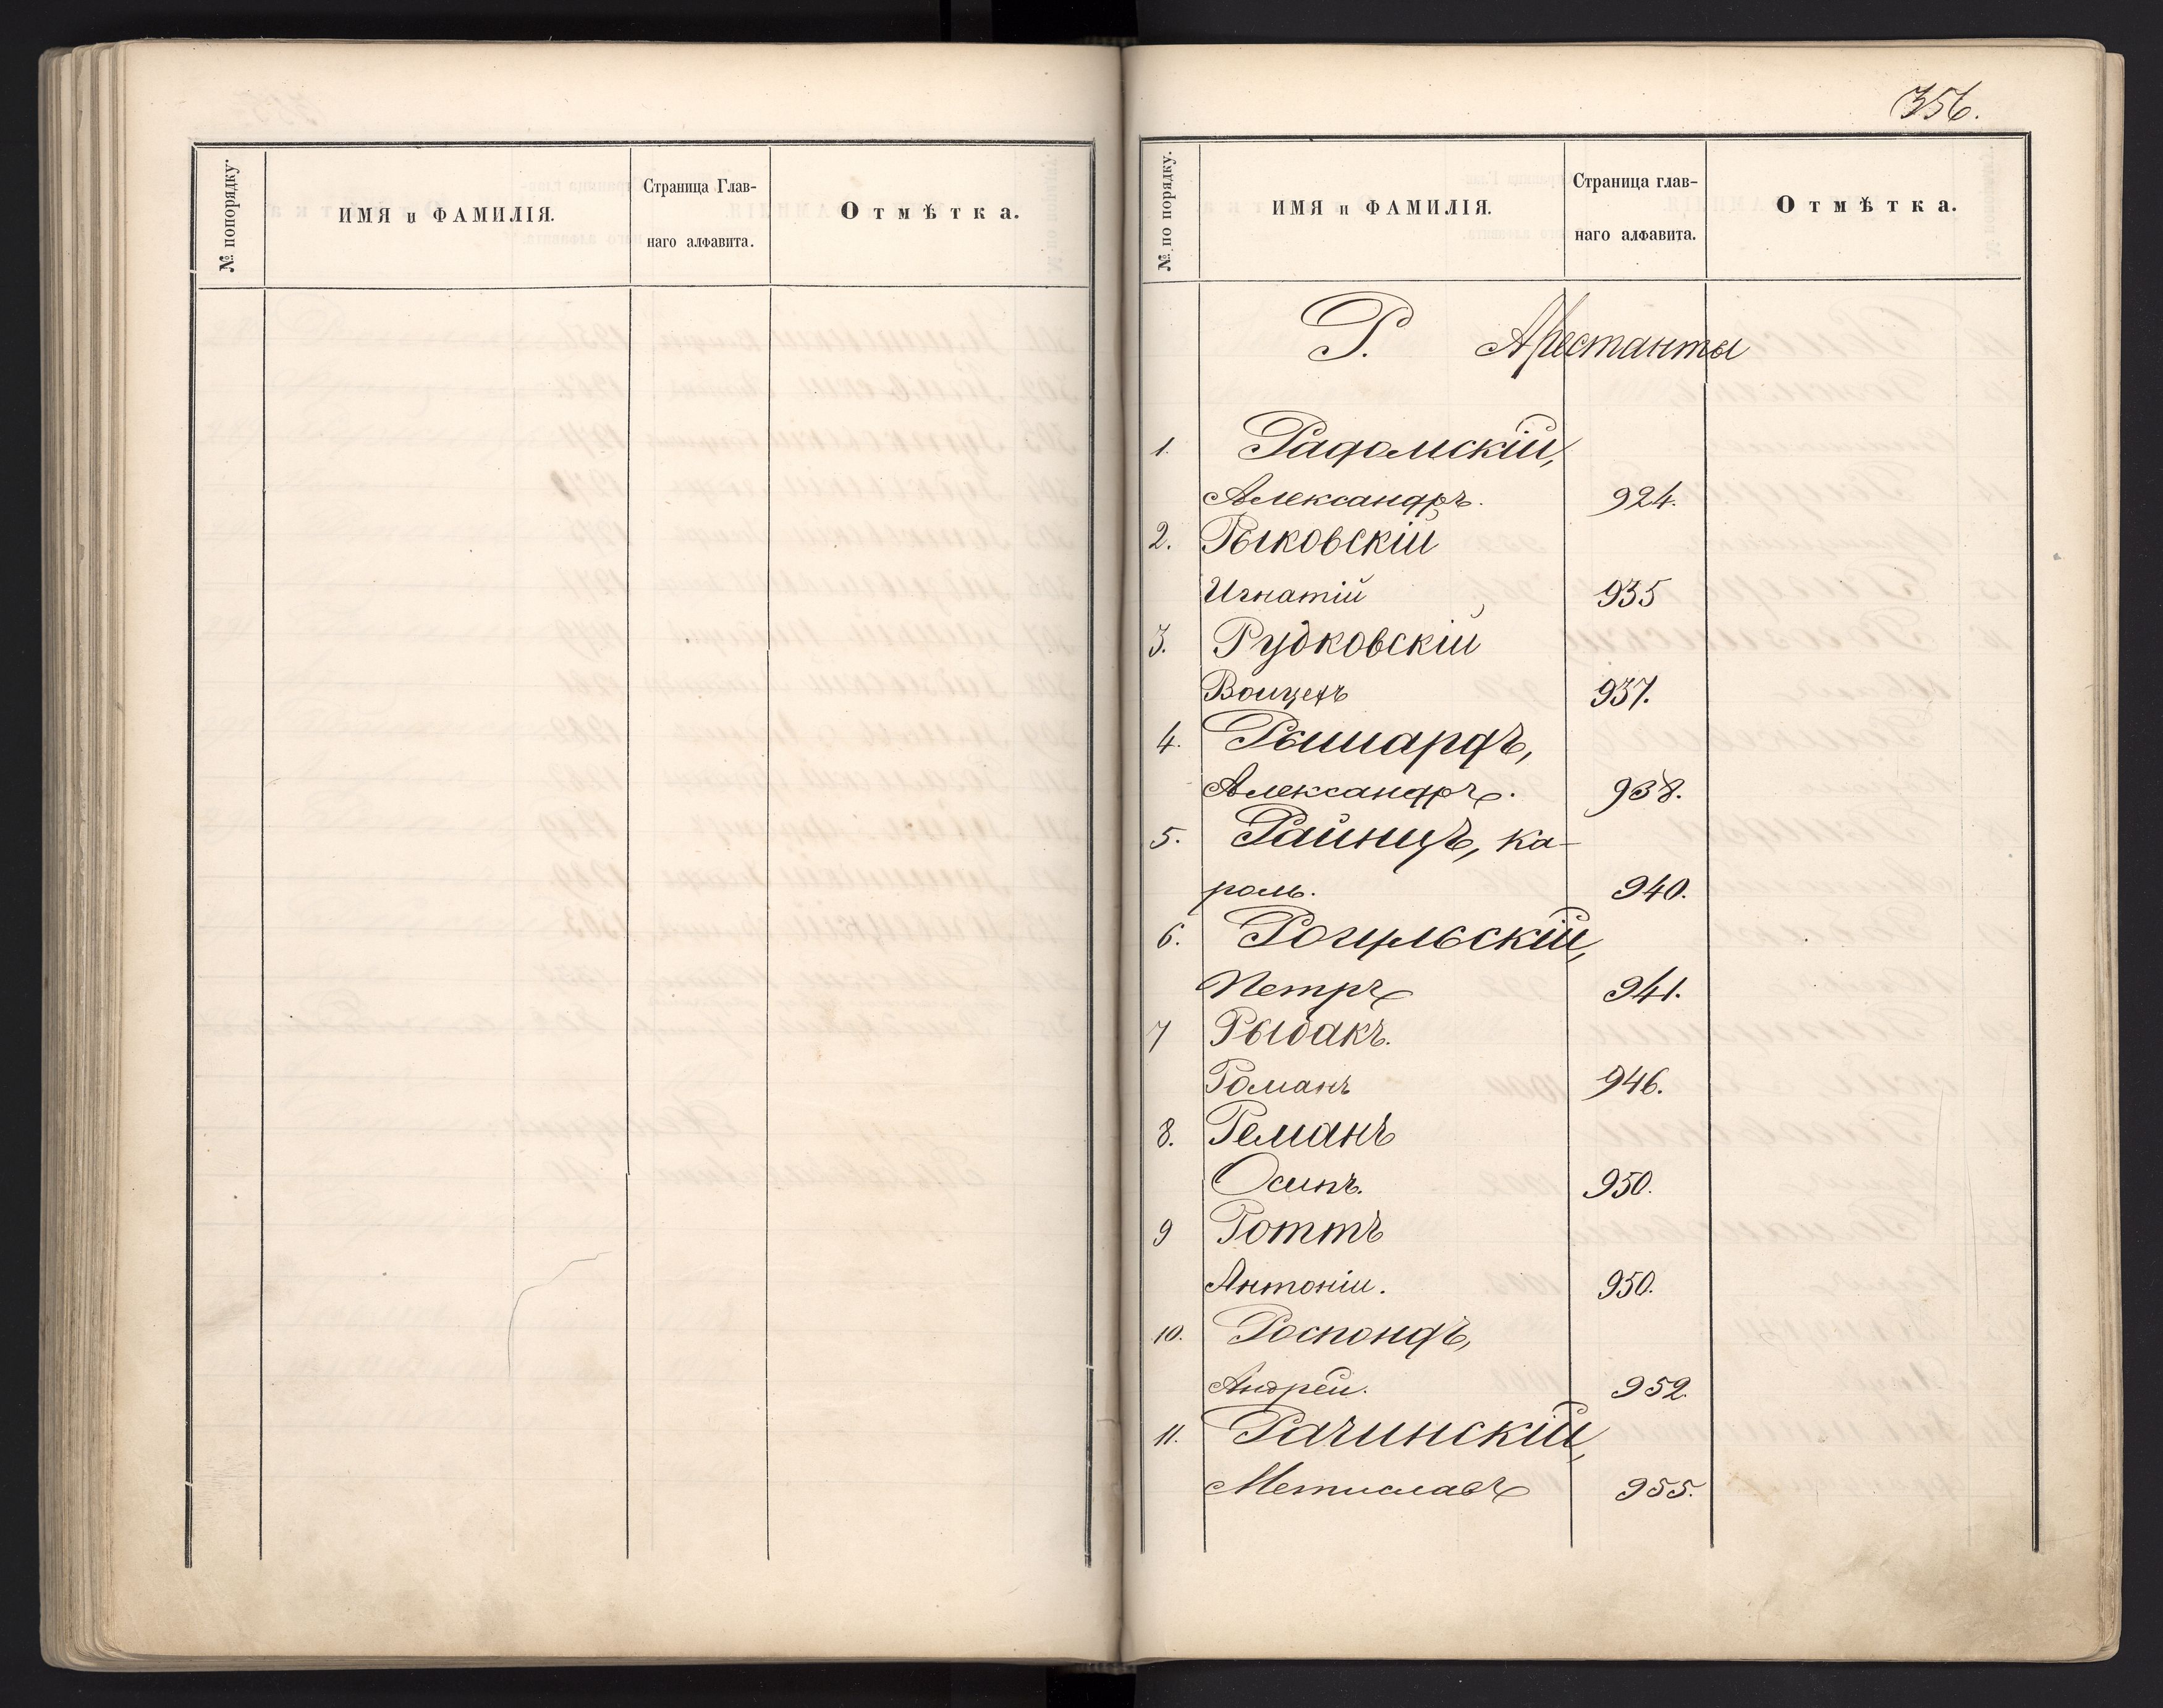 № попорядку.
ИМЯ и ФАМИЛІЯ.
Страница Глав-
наго алфавита.
Отмѣтка.
356.
№ по порядку.
ИМЯ и ФАМИЛІЯ.
Страница глав-
наго алфавита.
Отмѣтка.
Р. Арестанты
1. Радомскій,
Александръ. 924.
2. Рыковскій
Игнатій 935
3. Рудковскій
Войцехъ 937.
4. Рышардъ,
Александръ. 938.
5. Райницъ, Ка-
роль. 940.
6. Рогульскій,
Петръ 941.
7 Рыбакъ.
Романъ 946.
8. Реманъ
Осипъ. 950.
9 Роттъ
Антоній. 950.
10. Роспондъ,
Андрей. 952.
11. Рачинскій,
Метиславъ 955.